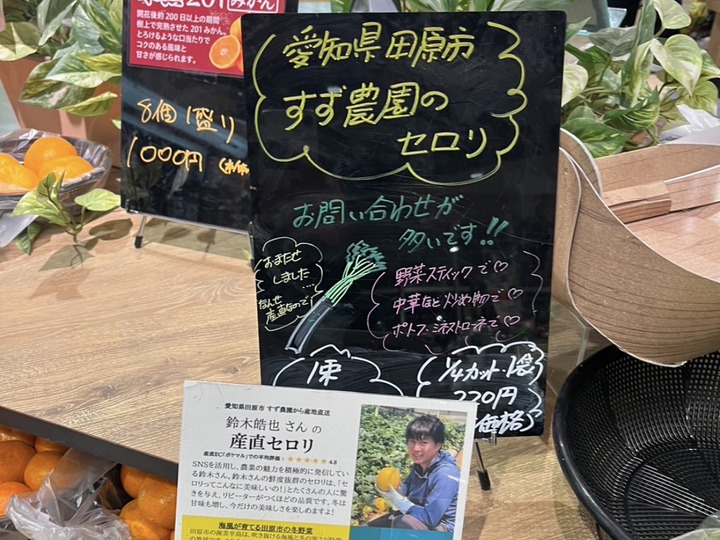 201みかん
開花後約200日以上の期間
樹上で完熟させた201みかん。
とろけるような口当たりで
コクのある風味と
甘さが感じられます。
8個1盛り
1000円
愛知県田原市
すず農園の
セロリ
お問い合わせが
多いです!!
おまたせ
しました…
なんせ
産直なので
野菜スティックで♡
中華など炒め物で♡
ポトフ・ミネストローネで♡
1束
1/4カット・1袋
230円
価格
愛知県田原市 すず農園から産地直送
鈴木皓也 さん の
産直セロリ
産直EC「ポケマル」での平均評価:★★★★★ 4.8
SNSを活用し、農業の魅力を積極的に発信してい
る鈴木さん。鈴木さんの鮮度抜群のセロリは、「セ
ロリってこんなに美味しいの!」とたくさんの人に驚
きを与え、リピーターがつくほどの品質です。冬は
甘味も増し、今だけの美味しさを楽しめますよ!
海風が育てる田原市の冬野菜